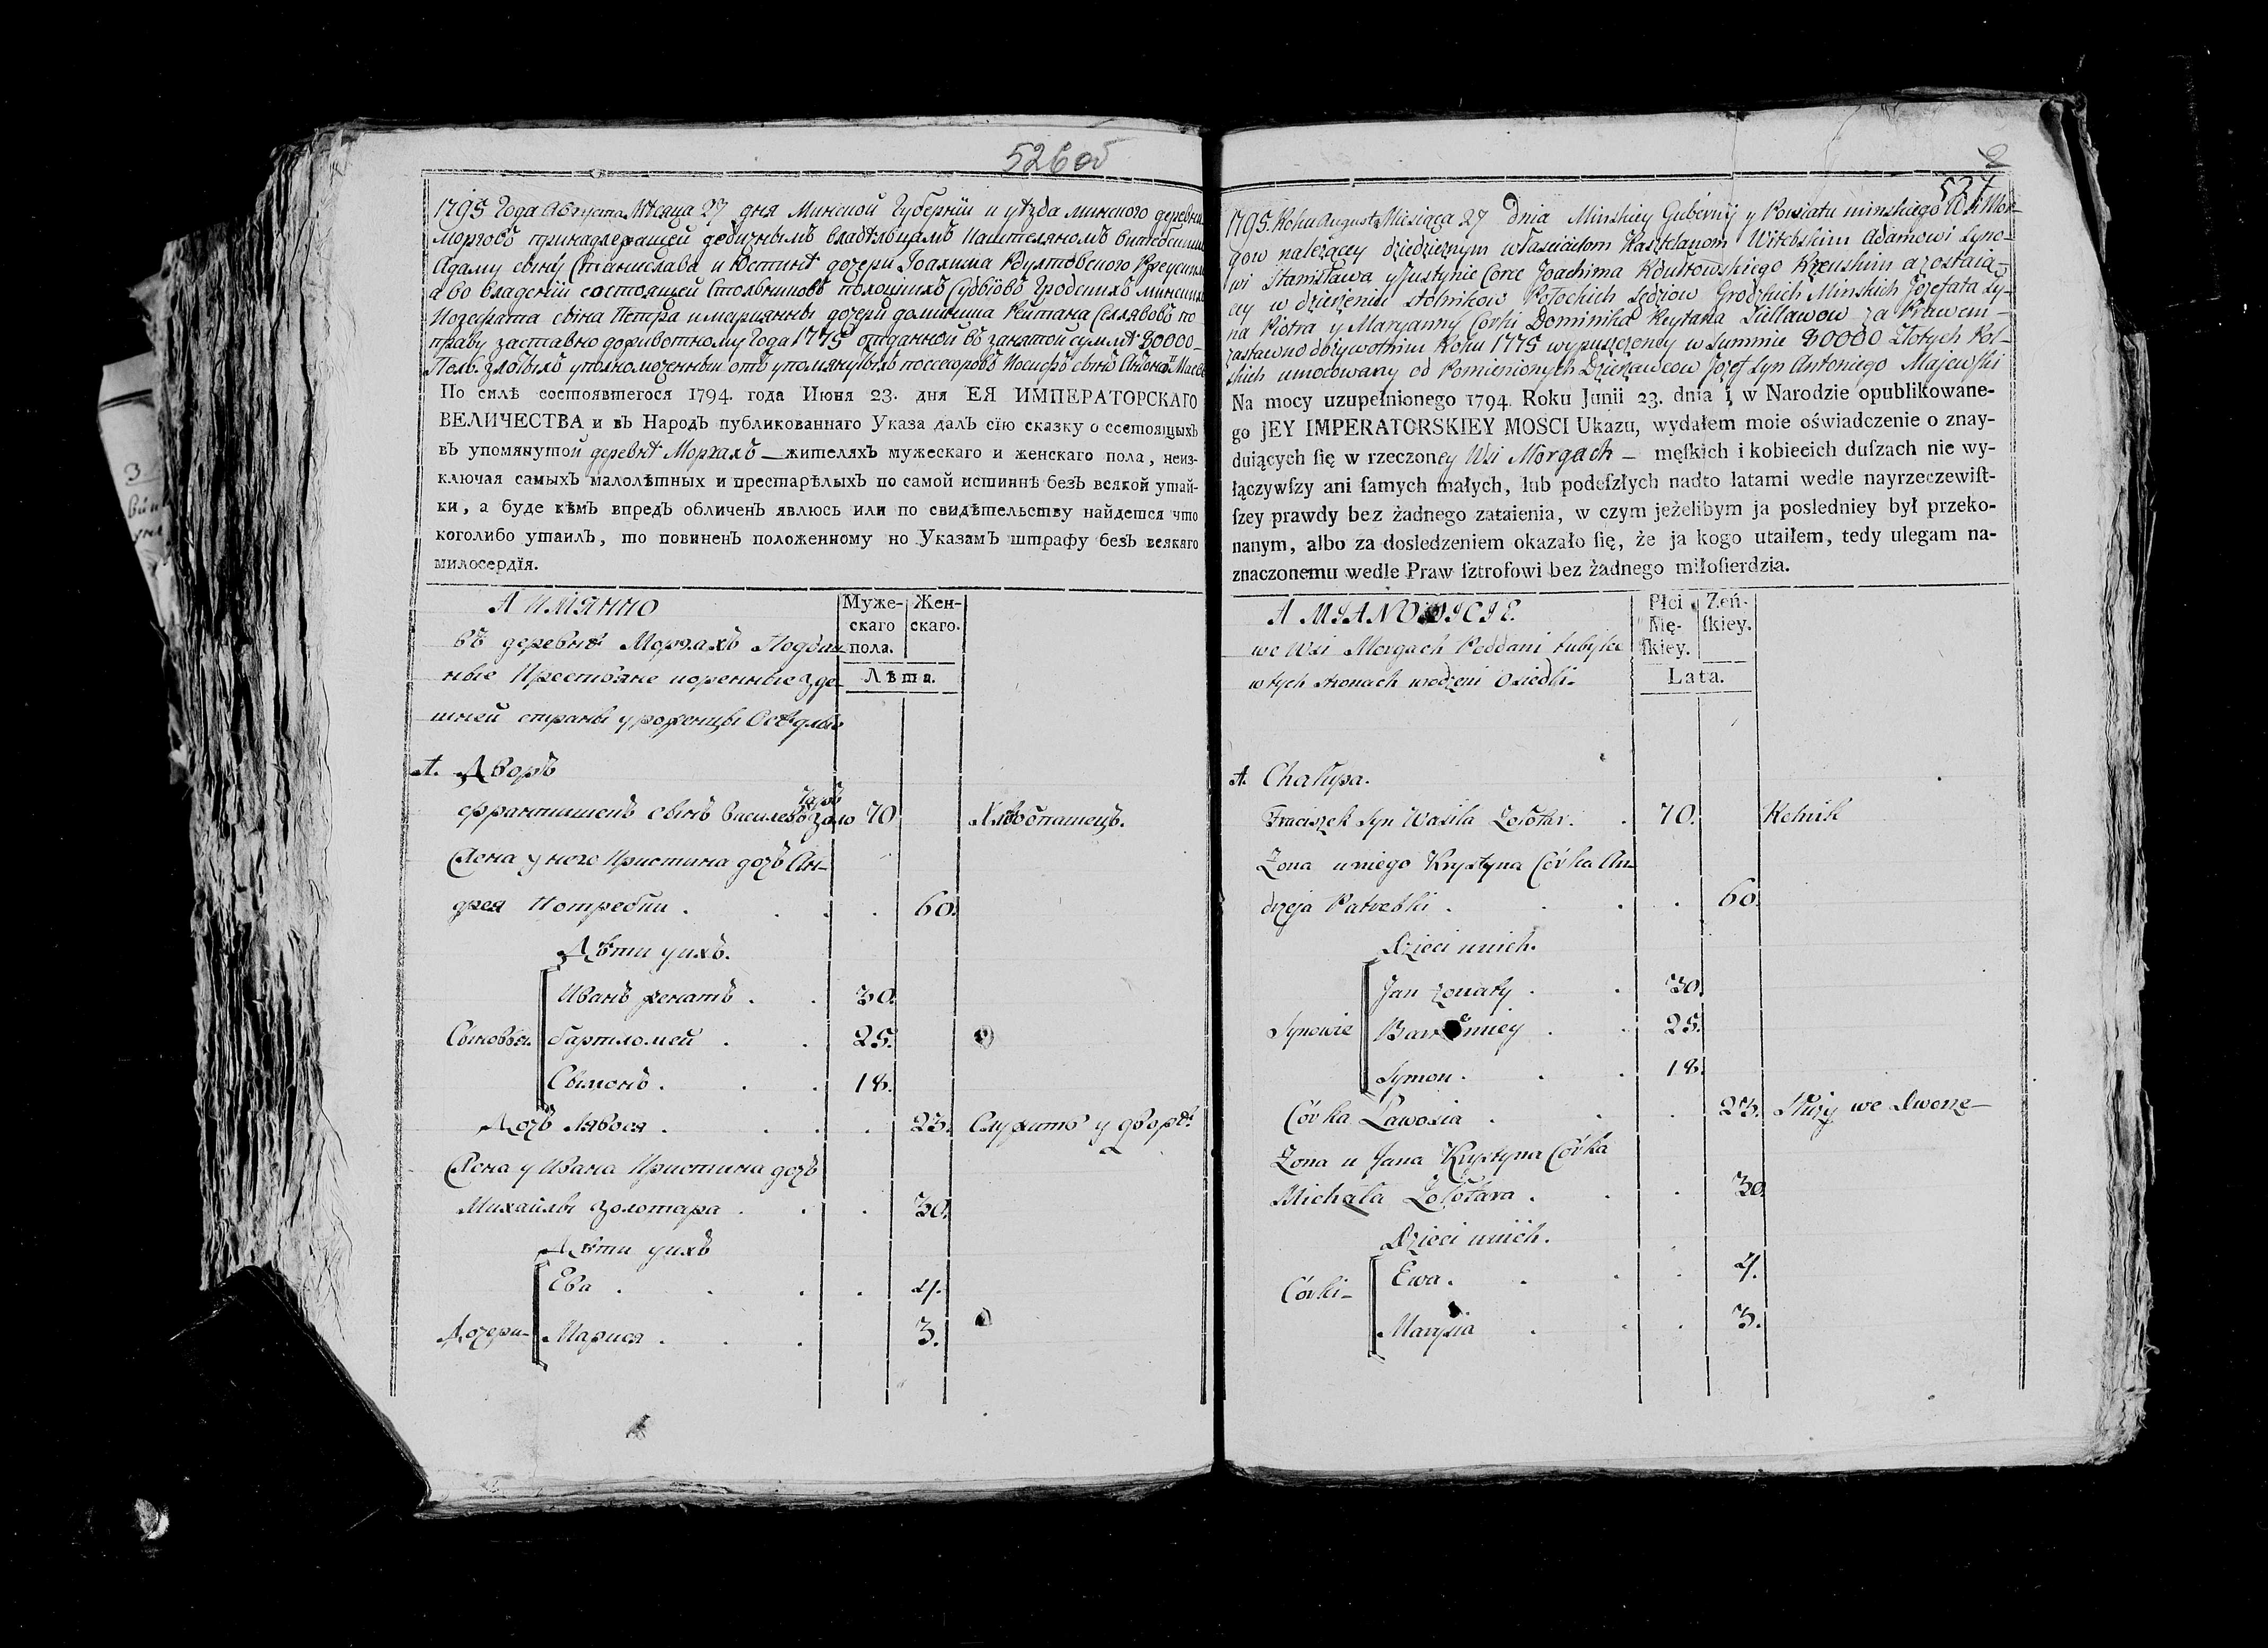 526об
1795 Года Августа Мѣсяца 27 дня Минской Губерніи и уѣзда минского деревни
Морговъ принадлежащей дедичнымъ владѣльцамъ Каштеляномъ витебскимъ
Адаму сыну Станислава и Юстинѣ дочери Іоахима
а во владеніи состоящей Стольниковъ полоцкихъ Судьіовъ Гродскихъ минскихъ
Иозефата сына Петра и марианны дочери доминика Рейтана Селлявовъ по
праву заставно доживотному Года 1775 отданной въ занятой суммѣ 80000
Поль. злотыхъ уполномоченный отъ упомянутыхъ поссесоровъ Иосифъ сынъ Антона
По силѣ состоявшегося 1794. года Июня 23. дня ЕЯ ИМПЕРАТОРСКАГО
ВЕЛИЧЕСТВА и въ Народъ публикованнаго Указа далъ сїю сказку о состоящыхъ
въ упомянутой деревнѣ Моргахъ — жителяхъ мужескаго и женскаго пола, неиз-
ключая самыхъ малолѣтныхъ и престарѣлыхъ по самой истиннѣ безъ всякой утай-
ки, а буде кѣмъ впредъ обличенъ явлюсь или по свидѣтельству найдется что
коголибо утаилъ, то повиненъ положенному но Указамъ штрафу безъ всякаго
милосердїя.
А ИМЯННО
Муже- Жен-
скаго скаго.
въ деревнѣ Моргахъ Поддан
пола.
ные Крестьяне коренные зде
Лѣта.
шней страны уроженцы Осѣдлые
А. Дворъ
таръ
Франтишекъ сынъ василевъ Золо 70 Хлѣбопашецъ.
Жена у него Кристина дочъ Ан-
дрея Потребки . . . . 60.
Дѣти у ихъ.
Иванъ женатъ . . 30.
Сыновья. Бартломей . . 25.
Сымонъ . . . 18.
Дочъ Лявося . . . . 23. Служитъ у дворѣ.
Жена у Ивана Кристина дочъ
Михайлы Золотара . . . 30.
Дѣти у ихъ
Ева . . . . 4.
Дочери- Марися . . . 3.
2
527
1795. Roku Augusta Miesiąca 27 Dnia Minskiey Gubernij y Powiatu minskiego Wsi Mor-
gow należącey dziedzicznym własicielom Kasztelanom Witebskim Adamowi Syno-
wi Stanisława y Justynie Corce Joachima Kdułtowskiego a zostaią-
cey w dzierżeniu stolnikow Połockich Sędziow Grodzkich Minskich Jozefata Sy-
na Piotra y Maryanny Corki Dominika Reytana Siellawow za Prawem
zastawno dożywotnim Roku 1775 wypuszczoney w Summie 80000 Złotych Pol-
skich umocowany od Pomienionych Dzierżawcow Jozef Syn Antoniego Majewski
Na mocy uzupełnionego 1794. Roku Junii 23. dnia i w Narodzie opublikowane-
go JEY IMPERATORSKIEY MOSCI Ukazu, wydałem moie oświadczenie o znay-
duiących ſię w rzeczoney Wsi Morgach — męſkich i kobiecich duſzach nie wy-
łączywſzy ani ſamych małych, lub podeſzłych nadto latami wedle nayrzeczewiſt-
ſzey prawdy bez żadnego zataienia, w czym jeżelibym ja posledniey był przeko-
nanym, albo za dosledzeniem okazało ſię, że ja kogo utaiłem, tedy ulegam na-
znaczonemu wedle Praw ſztrofowi bez żadnego miłoſierdzia.
A MIANOWICIE.
Płci Żeń-
Mę- ſkiey.
we Wsi Morgach Poddani tubylce
ſkiey.
w tych stronach urodzeni Osiedli.
Lata.
A. Chałupa.
Fraciszek Syn Wasila Zołotar. . 70. Rolnik
Zona u niego Krystyna Córka An
drzeja Patrebki . . . . 60.
Dzieci u nich.
Jan żonaty . . 30.
Synowie Bartłomiey . . 25.
Symon . . . 18.
Córka Lawosia . . . 23. Służy we Dworze—
Zona u Jana Krystyna Córka
Michała Zołotara . . . 30
Dzieci u nich.
Ewa . . . . 4.
Córki- Marysia . . . 3.